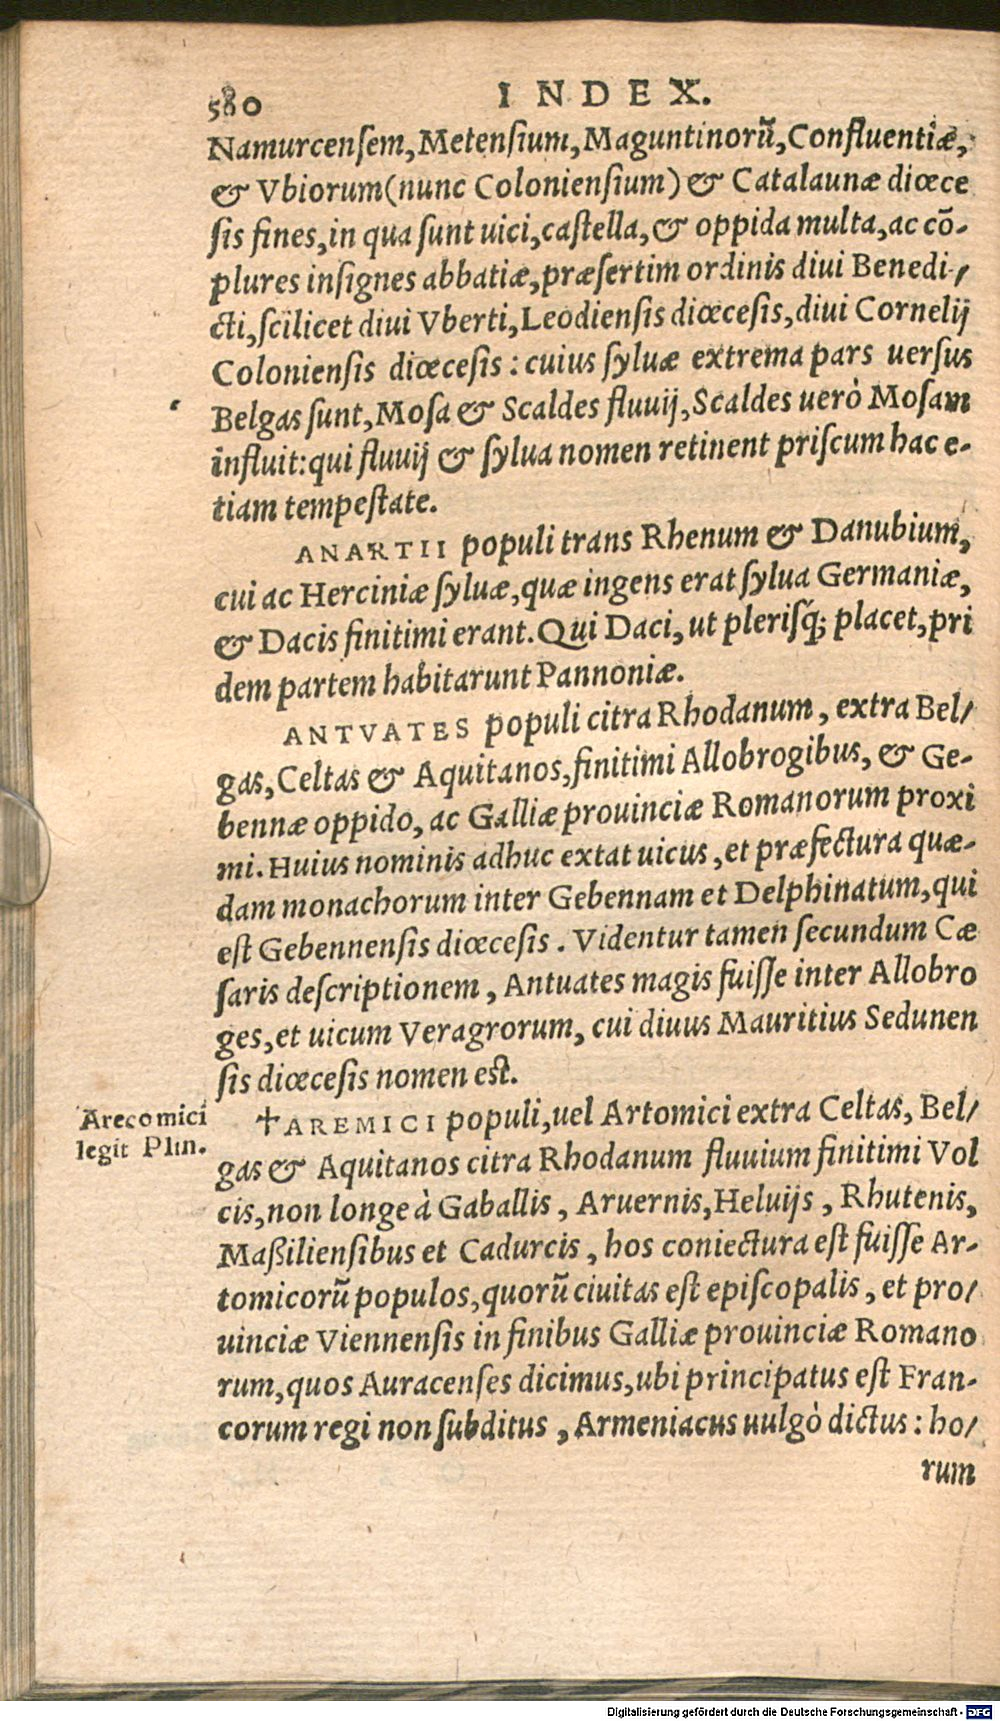 580 INDEX.
Namurcensem, Metensium, Maguntinorũ, Confluentiæ,
& Vbiorum (nunc Coloniensium) & Catalaunæ diœce
sis fines, in qua sunt uici, castella, & oppida multa, ac cõ-
plures insignes abbatiæ, præsertim ordinis diui Benedi-/
cti, scilicet diui Vberti, Leodiensis diœcesis, diui Cornelij
Coloniensis diœcesis: cuius syluæ extrema pars uersus
Belgas sunt, Mosa & Scaldes fluuij, Scaldes uerò Mosam
influit: qui fluuij & sylua nomen retinent priscum hac e-
tiam tempestate.
ANARTII populi trans Rhenum & Danubium,
cui ac Herciniæ syluæ, quæ ingens erat sylua Germaniæ,
& Dacis finitimi erant. Qui Daci, ut plerisq́; placet, pri
dem partem habitarunt Pannoniæ.
ANTVATES populi citra Rhodanum, extra Bel/
gas, Celtas & Aquitanos, finitimi Allobrogibus, & Ge-
bennæ oppido, ac Galliæ prouinciæ Romanorum proxi
mi. Huius nominis adhuc extat uicus, et præfectura quæ-
dam monachorum inter Gebennam et Delphinatum, qui
est Gebennensis diœcesis. Videntur tamen secundum Cæ
saris descriptionem, Antuates magis fuisse inter Allobro
ges, et uicum Veragrorum, cui diuus Mauritius Sedunen
sis diœcesis nomen est.
Arecomici
legit Plin.
✝AREMICI populi, uel Artomici extra Celtas, Bel/
gas & Aquitanos citra Rhodanum fluuium finitimi Vol
cis, non longe à Gaballis, Aruernis, Heluijs, Rhutenis,
Maßiliensibus et Cadurcis, hos coniectura est fuisse Ar-
tomicorũ populos, quorũ ciuitas est episcopalis, et pro/
uinciæ Viennensis in finibus Galliæ prouinciæ Romano
rum, quos Auracenses dicimus, ubi principatus est Fran-
corum regi non subditus, Armeniacus uulgò dictus: ho/
rum
Digitalisierung gefördert durch die Deutsche Forschungsgemeinschaft - DFG